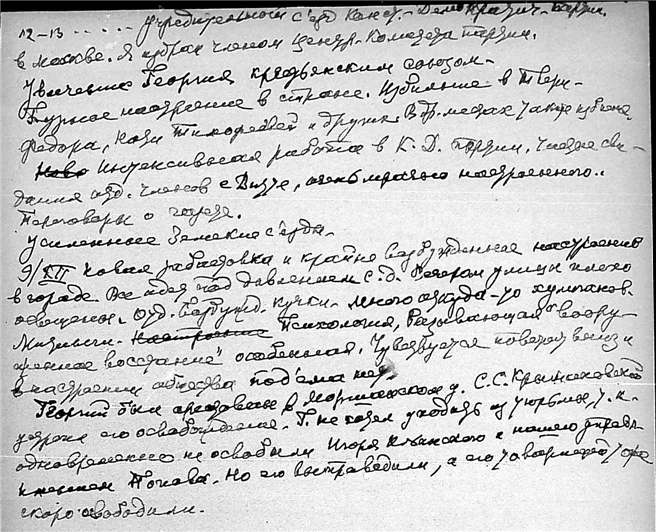 12-13 ..... Учредительный с'езд Конст.-Демократич. партии
в Москве. Я избран членом Центр. Комитета партии.
Увлечение Георгия крестьянским союзом.
Бурное настроение в стране. Избиение в Твери
Федора, Коли и других. В др. местах также избиения.
Интенсивная работа в К. Д. партии. Частые сви-
дания отд. членов с Витте, очень мрачно настроенного.
Переговоры о
Усиленные Земские с'езды.
9/XII Новая забастовка и крайне возбужденное настроение
в городе. Все идет под давлением с.-д. Вечером улицы плохо
освещены. Отд. возбужд. кучки. Много откуда-то хулиганов.
Психология, вызывающая "воору-
женное восстание" особенная. Чувствуется поворот вниз и
в настроении общества под'ема нет.
Георгий был арестован в Моршанском у. С.С. Крыжановский
устроил его освобождение. Г. не хотел уходить из тюрьмы, т.к.
одновременно не освободили Игоря Ильинского и нашего управл.
имением Попова. Но его выпроводили, а его товарищей тоже
скоро освободили.